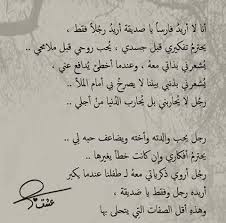 أنا لا أريدُ فارساً يا صديقة أريدُ رجُلاً فقط ،
يحترمُ تفكيري قبل جسدي ، يُحب روحي قبل ملامحي ..
يُشعرني بذاتي معهُ ، وعندما أخطئ يُدافع عني ,
يُشعرني بذنبي بيننا لا يصرخُ بي أمام الملأ ..
رجل لا يُحاربني بل يُحارب الدّنيا من أجلي ..
رجل يحب والدته وأخته ويضاعف حبه لي ..
يحترمُ أفكاري وإن كانت خطأ يغيرها ..
رجُل أروي ذكرياتي معهُ لـ طفلنا عندما يكبر
أريده رجل وفقط يا صديقة ،
وهذه أقل الصفات التي يتحلى بها